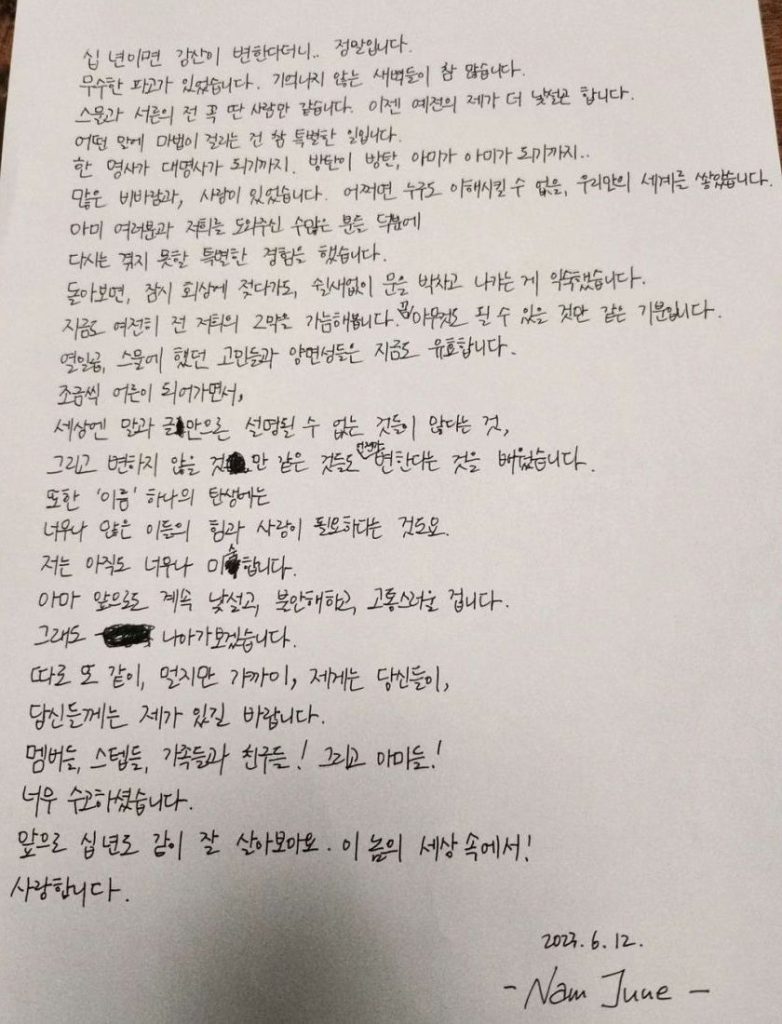 십 년이면 강산이 변한다더니.. 정말입니다.
무수한 파고가 있었습니다. 기억나지 않는 새벽들이 참 많습니다.
스물과 서른의 전 꼭 딴 사람만 같습니다. 이젠 예전의 제가 더 낯설곤 합니다.
어떤 말에 마법이 걸리는 건 참 특별한 일입니다.
한 명사가 대명사가 되기까지. 방탄이 방탄, 아미가 아미가 되기까지..
많은 비바람과, 사랑이 있었습니다. 어쩌면 누구도 이해시킬 수 없을, 우리만의 세계를 쌓았습니다.
아미 여러분과 저희를 도와주신 수많은 분들 덕분에
다시는 겪지 못할 특별한 경험을 했습니다.
돌아보면, 잠시 회상에 젖다가도, 쉴새없이 문을 박차고 나가는 게 익숙했습니다.
지금도 여전히 전 저희의 2막을 가늠해봅니다. 꼭 아무것도 될 수 있을 것만 같은 기분입니다.
열일곱, 스물에 했던 고민들과 양면성들은 지금도 유효합니다.
조금씩 어른이 되어가면서,
세상엔 말과 글만으론 설명될 수 없는 것들이 많다는 것,
그리고 변하지 않을 것만 같은 것들도 언젠가 변한다는 것을 배웠습니다.
또한 '이름' 하나의 탄생에는
너무나 많은 이들의 힘과 사랑이 필요하다는 것도요.
저는 아직도 너무나 미숙합니다.
아마 앞으로도 계속 낯설고, 불안해하고, 고통스러울 겁니다.
그래도 나아가보겠습니다.
따로 또 같이, 멀지만 가까이, 제게는 당신들이,
당신들께는 제가 있길 바랍니다.
멤버들, 스텝들, 가족들과 친구들! 그리고 아미들!
너무 수고하셨습니다.
앞으로 십년도 같이 잘 살아보아요. 이 놈의 세상 속에서!
사랑합니다.
2023.6.12.
- Nam June -